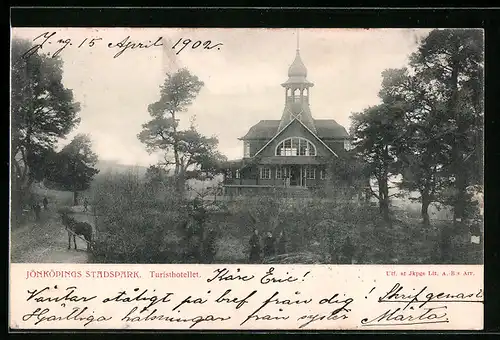 J-g 15 April 1902.
JÖNKÖPINGS STADSPARK. Turisthotellet.
Utf. at Jkpgs Lit. A.-B:s Arr.
Käre Eric!
Väntar otåligt på bref från dig! Skrif genast
Hjärtliga hälsningar från syster Märta